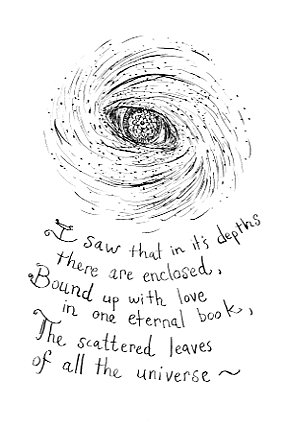 I saw that in it's depths
there are enclosed,
Bound up with love
in one eternal book,
The scattered leaves
of all the universe ~